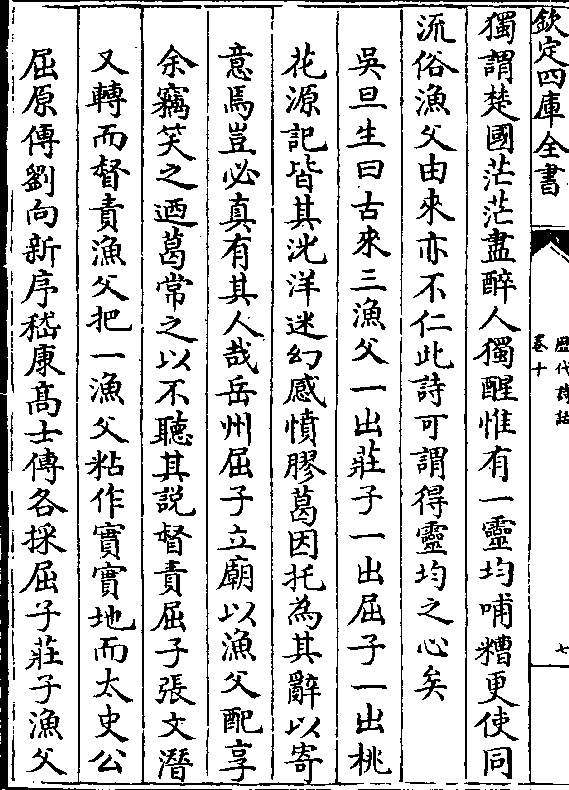 欽定四庫全書
歷代詩話
卷十
七
獨謂楚國茫茫盡醉人獨醒惟有一靈均哺糟更使同
流俗漁父由來亦不仁此詩可謂得靈均之心矣
吳旦生曰古來三漁父一出莊子一出屈子一出桃
花源記皆其洸洋迷幻感憤膠葛因托為其辭以寄
意焉豈必真有其人哉岳州屈子立廟以漁父配享
余竊笑之迺葛常之以不聽其説督責屈子張文潛
又轉而督責漁父把一漁父粘作實實地而太史公
屈原傳劉向新序嵇康髙士傳各採屈子莊子漁父